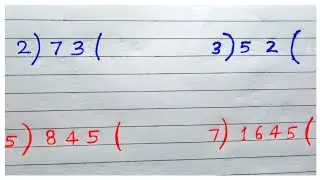 2) 73 (
3) 52 (
5) 845 (
7) 1645 (